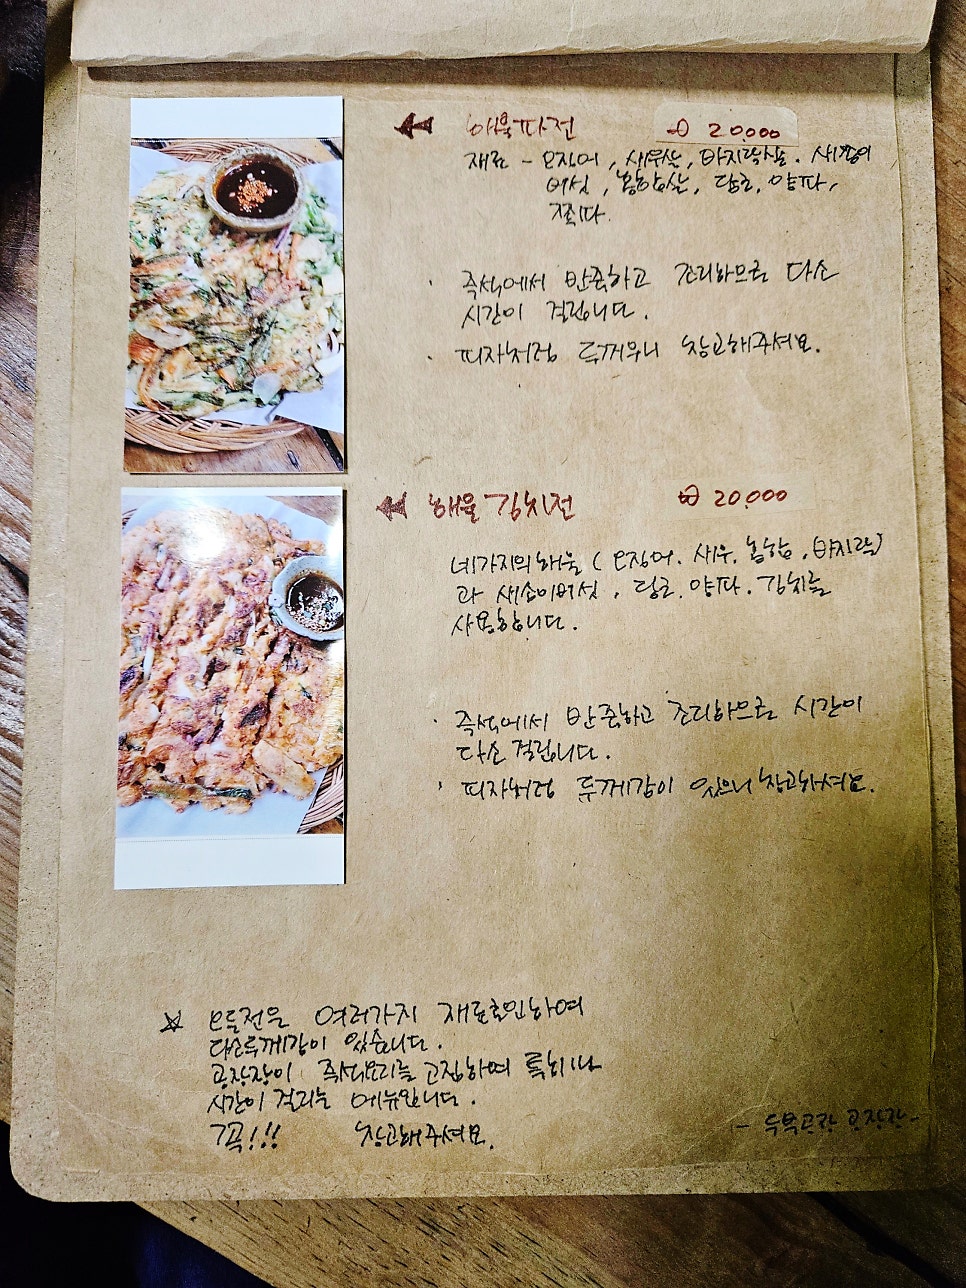 해물파전 ₩ 20000
재료 - 오징어, 새우살, 바지락살. 새송이
버섯, 홍합살, 당근, 양파,
쪽파.
· 즉석에서 반죽하고 조리하므로 다소
시간이 걸립니다.
· 피자처럼 두꺼우니 참고해주셔요.
해물김치전 ₩ 20,000
네가지의 해물 (오징어. 새우, 홍합, 바지락)
과 새송이버섯, 당근, 양파. 김치를
사용합니다.
· 즉석에서 반죽하고 조리하므로 시간이
다소 걸립니다.
· 피자처럼 두께감이 있으니 참고하셔요.
☆ 모든전은 여러가지 재료로인하여
다소두께감이 있습니다.
공장장이 즉석요리를 고집하여 특히나
시간이 걸리는 메뉴입니다.
꼭!!! 참고해주셔요.
- 두목공장 공장장 -